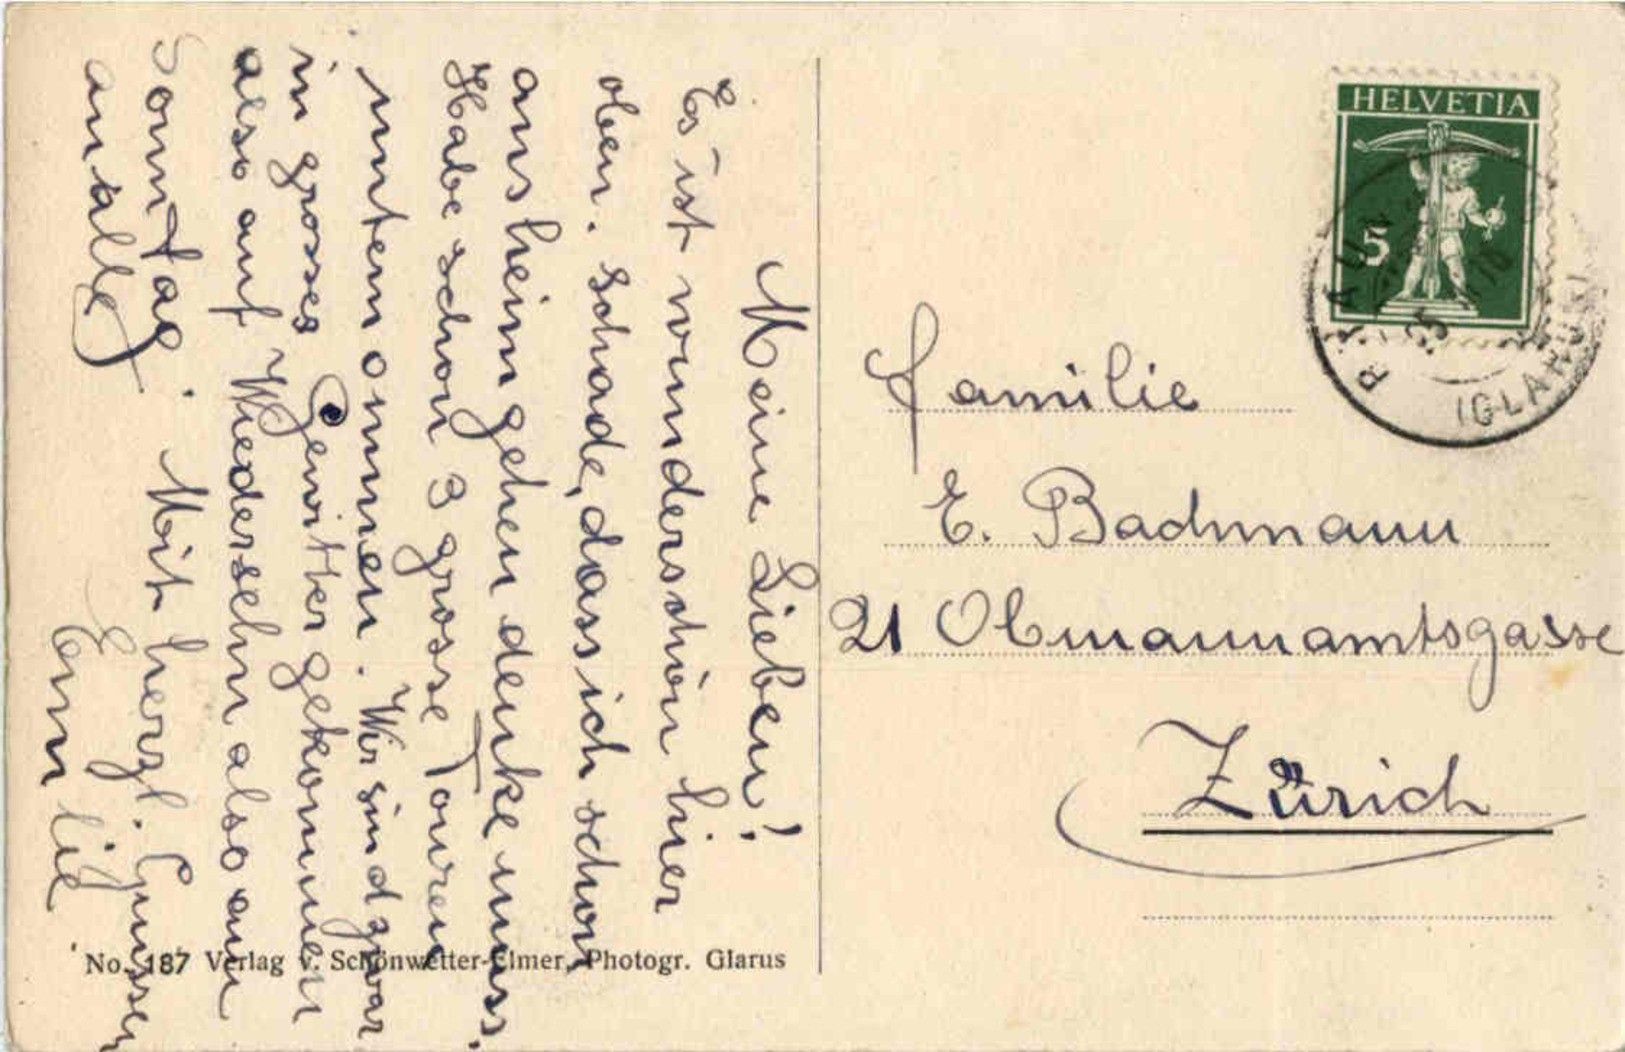 Meine Lieben!
Es ist wunderschön hier
oben. Schade, dass ich schon
ans heimgehen denke muss.
Habe schon 3 grosse Touren
unternommen. Wir sind zwar
in grosses Gewitter gekommen
also auf Wiedersehn also am
Sonntag. Mit herzl. Grüssen
an alle
Emilie
No. 187 Verlag v. Schönwetter-Elmer, Photogr. Glarus
HELVETIA
5
(GLARUS)
Familie
E. Bachmann
21 Obmannamtsgasse
Zürich